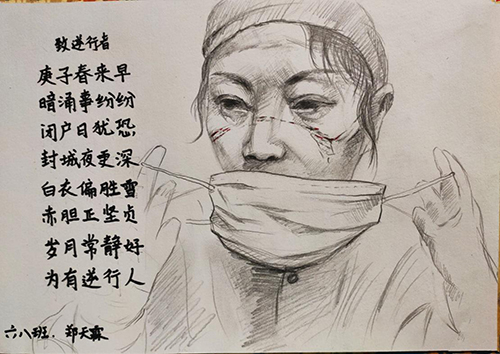 致逆行者
庚子春来早
暗涌事纷纷
闭户日犹恐
封城夜更深
白衣偏胜雪
赤胆正坚贞
岁月常静好
为有逆行人
六八班.郑天霖